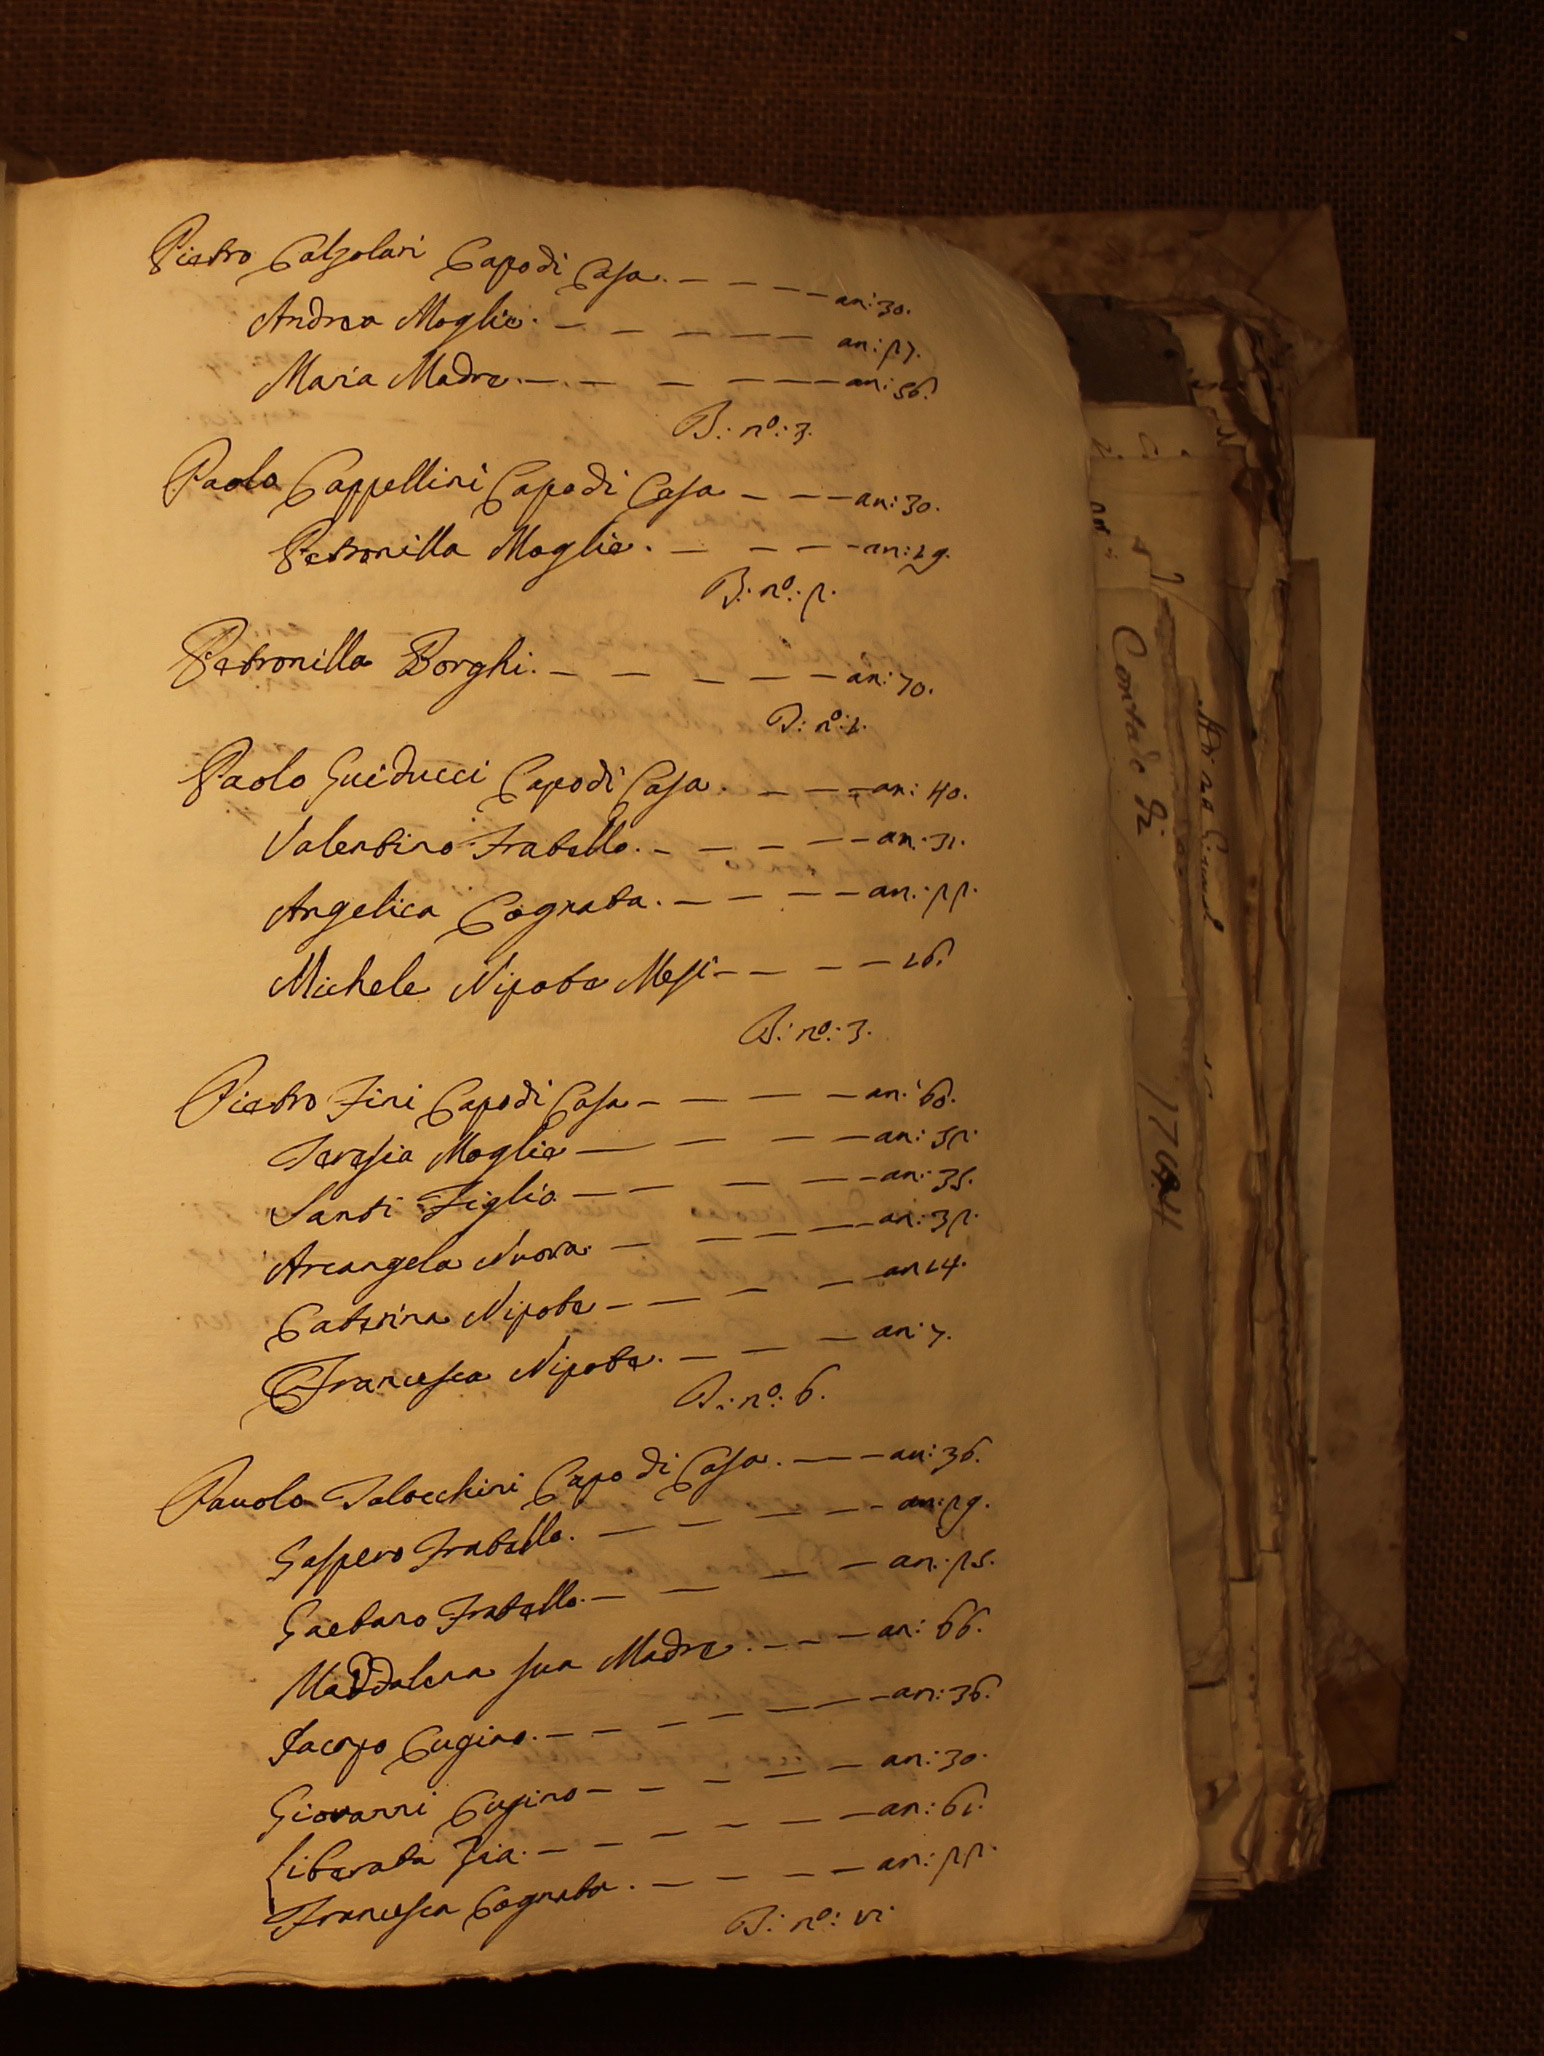 Pietro Calzolari Capo di Casa. an: 30.
Andrea Moglie. an: 27.
Maria Madre. an: 56.
B: nº: 3.
Paolo Cappellini Capo di Casa an: 30.
Petronilla Moglie. an: 29.
B: nº: 2.
Petronilla Borghi. an: 70.
B: nº: 1.
Paolo Guiducci Capo di Casa. an: 40.
Valentino Fratello. an: 31.
Angelica Cognata. an: 22.
Michele Nipote Mesi 16.
B: nº: 3.
Pietro Fini Capo di Casa an: 60.
Teresia Moglie an: 52.
Santi Figlio an: 35.
Arcangela Nuora. an: 32.
Caterina Nipote an 14.
Francesca Nipote. an: 7.
B: nº: 6.
Pauolo Talocchini Capo di Casa. an: 36.
Gaspero Fratello. an: 29.
Gaetano Fratello. an: 25.
Maddalena sua Madre. an: 66.
Jacopo Cugino. an: 36.
Giovanni Cugino an: 30.
Liberata Zia. an: 61.
Francesca Cognata. an: 22.
B: nº:
Contado di